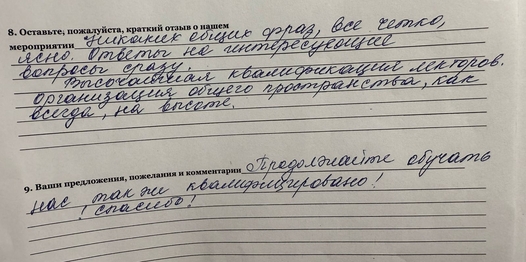 8. Оставьте, пожалуйста, краткий отзыв о нашем
мероприятии Никаких общих фраз, все четко,
ясно. Ответы на интересующие
вопросы сразу.
Высочайшая квалификация лекторов.
Организация общего пространства, как
всегда, на высоте.
9. Ваши предложения, пожелания и комментарии Продолжайте обучать
нас так же квалифицировано!
! спасибо!